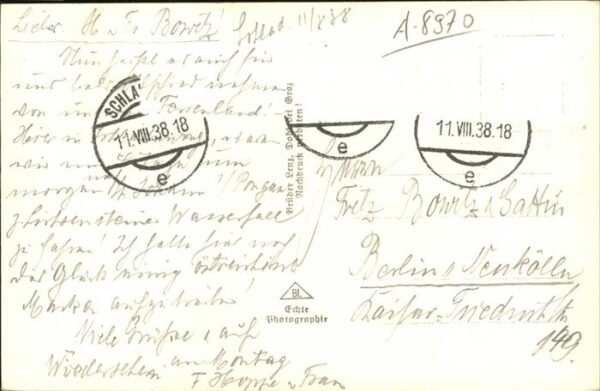 Lieber H u Fr Bowitz!
11/8 38
A-8970
Nun heißt es auch für
uns bald Abschied nehmen
von
Hier in
wir
morgen St. Johann i/Pongau
z Liechtensteiner Wasserfall
zu fahren! Ich hatte hier noch
das Glück einig österreichische
Marken aufzutreiben!
Viele Grüße u auf
Wiedersehen am Montag
F Hoppe u Frau
SCHLA
11.VIII.38.18
e
e
11.VIII.38.18
e
Brüder Lenz, Dobl bei Graz
Nachdruck verboten!
BL
Echte
Photographie
Fritz Bowitz u Gattin
Berlin Neukölln
Kaiser-Friedrichstr
149